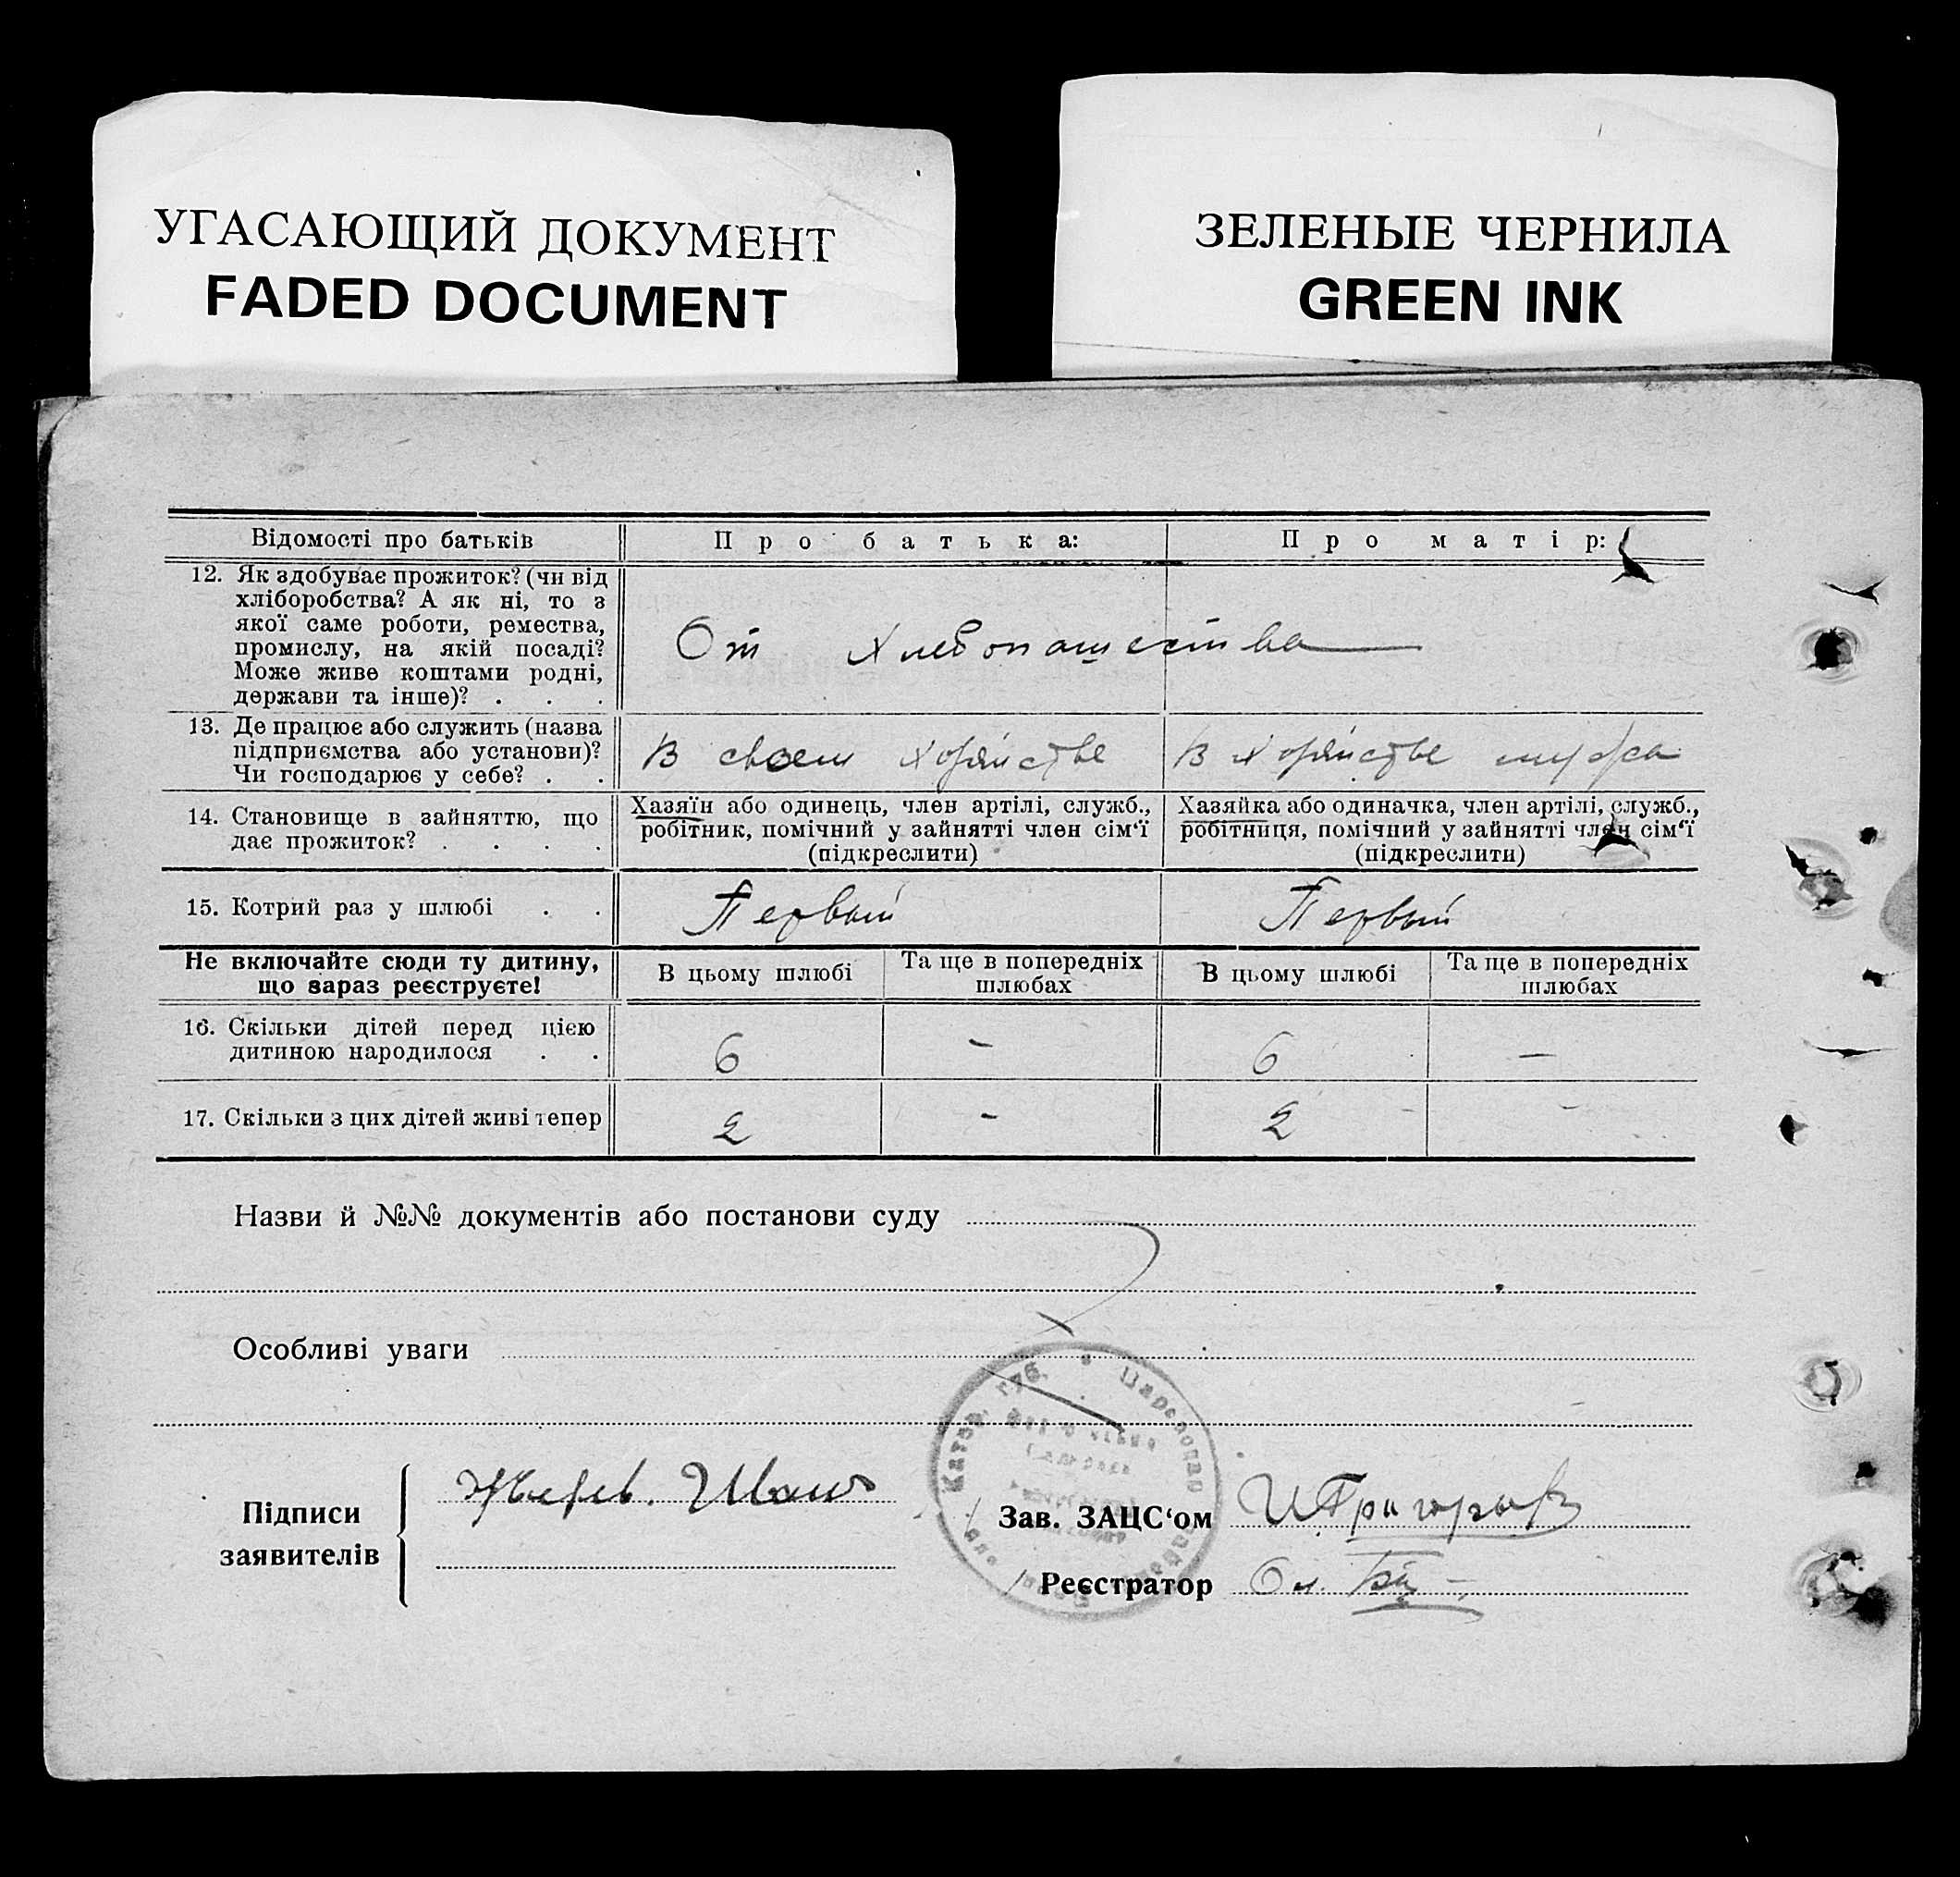 УГАСАЮЩИЙ ДОКУМЕНТ
FADED DOCUMENT
ЗЕЛЕНЫЕ ЧЕРНИЛА
GREEN INK
Відомості про батьків
Про батька:
Про матір:
12. Як здобуває прожиток? (чи від
хліборобства? А як ні, то з
якої саме роботи, ремества,
промислу, на якій посаді?
Може живе коштами родні,
держави та інше)? . . .
От Хлебопашества
13. Де працює або служить (назва
підприємства або установи)?
Чи господарює у себе? . .
В своем хозяйстве
В хозяйстве мужа
14. Становище в зайняттю, що
дає прожиток? . . . .
Хазяїн або одинець, член артілі, служб.,
робітник, помічний у зайнятті член сім‘ї
(підкреслити)
Хазяйка або одиначка, член артілі, служб.,
робітниця, помічний у зайнятті член сім‘ї
(підкреслити)
15. Котрий раз у шлюбі . .
Первый
Первый
Не включайте сюди ту дитину,
що зараз реєструєте!
В цьому шлюбі
Та ще в попередніх
шлюбах
В цьому шлюбі
Та ще в попередніх
шлюбах
16. Скільки дітей перед цією
дитиною народилося . .
6
-
6
—
17. Скільки з цих дітей живі тепер
2
-
2
-
Назви й №№ документів або постанови суду
Особливі уваги
Катер. губ.
Підписи
заявителів
Иван
Зав. ЗАЦС‘ом
И Григорьев
Реєстратор